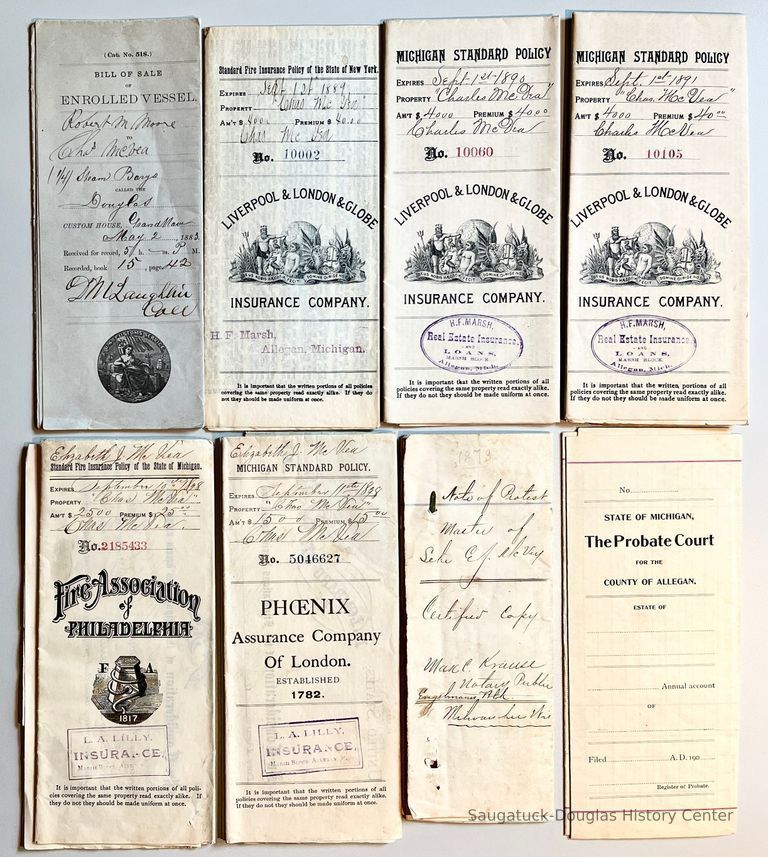 (Cat. No. 518.)
BILL OF SALE
OF
ENROLLED VESSEL.
Robert M. Moore
TO
Chas McVea
(1/4) Steam Barge
CALLED THE
Douglas
CUSTOM HOUSE, Grand Haven
May 2, 1883
Received for record, 5 h. m. P M.
Recorded, book 15, page 42
D McLaughlin
Coll
Standard Fire Insurance Policy of the State of New York.
EXPIRES Sept 1st 1889
PROPERTY "Chas Mc Vea"
AM'T $ 4000 PREMIUM $ 40.00
Chas Mc Vea
No. 10002
LIVERPOOL & LONDON & GLOBE
INSURANCE COMPANY.
H. F. Marsh,
Allegan, Michigan.
It is important that the written portions of all policies
covering the same property read exactly alike. If they do
not they should be made uniform at once.
MICHIGAN STANDARD POLICY
EXPIRES Sept. 1st 1890
PROPERTY "Charles Mc Vea"
AM'T $ 4000 PREMIUM $ 40.00
Charles McVea
No. 10060
LIVERPOOL & LONDON & GLOBE
INSURANCE COMPANY.
H.F. MARSH,
Real Estate Insurance.
AND
LOANS,
MARSH BLOCK
Allegan, Mich.
It is important that the written portions of all
policies covering the same property read exactly alike.
If they do not they should be made uniform at once.
MICHIGAN STANDARD POLICY
EXPIRES Sept. 1st 1891
PROPERTY "Chas. Mc Vea"
AM'T $ 4000 PREMIUM $ 40.00
Charles McVea
No. 10105
LIVERPOOL & LONDON & GLOBE
INSURANCE COMPANY.
H.F. MARSH,
Real Estate Insurance.
AND
LOANS,
MARSH BLOCK
Allegan, Mich.
It is important that the written portions of all
policies covering the same property read exactly alike.
If they do not they should be made uniform at once.
Elizabeth J. Mc Vea
Standard Fire Insurance Policy of the State of Michigan.
EXPIRES September 1898
PROPERTY "Chas McVea"
AM'T $ 2500 PREMIUM $ 25.00
Chas McVea.
No. 2185433
Fire Association
of
PHILADELPHIA
F A
1817
L. A. LILLY.
INSURANCE,
It is important that the written portions of all poli-
cies covering the same property read exactly alike. If
they do not they should be made uniform at once.
Elizabeth J. Mc Vea
MICHIGAN STANDARD POLICY.
EXPIRES September 11th 1898
PROPERTY "Chas Mc Vea"
AM'T $ 1500 PREMIUM $ 15.00
Chas Mc Vea
No. 5046627
PHŒNIX
Assurance Company
Of London.
ESTABLISHED
1782.
L. A. LILLY.
INSURANCE,
It is important that the written portions of all
policies covering the same property read exactly alike.
If they do not they should be made uniform at once.
1879
Note of Protest
Master of
Schr
Certified Copy
Max C. Krause
Notary Public
Milwaukee Wis
No.
STATE OF MICHIGAN,
The Probate Court
FOR THE
COUNTY OF ALLEGAN.
ESTATE OF
Annual account
OF
Filed A.D. 190
Register of Probate.
Saugatuck-Douglas History Center